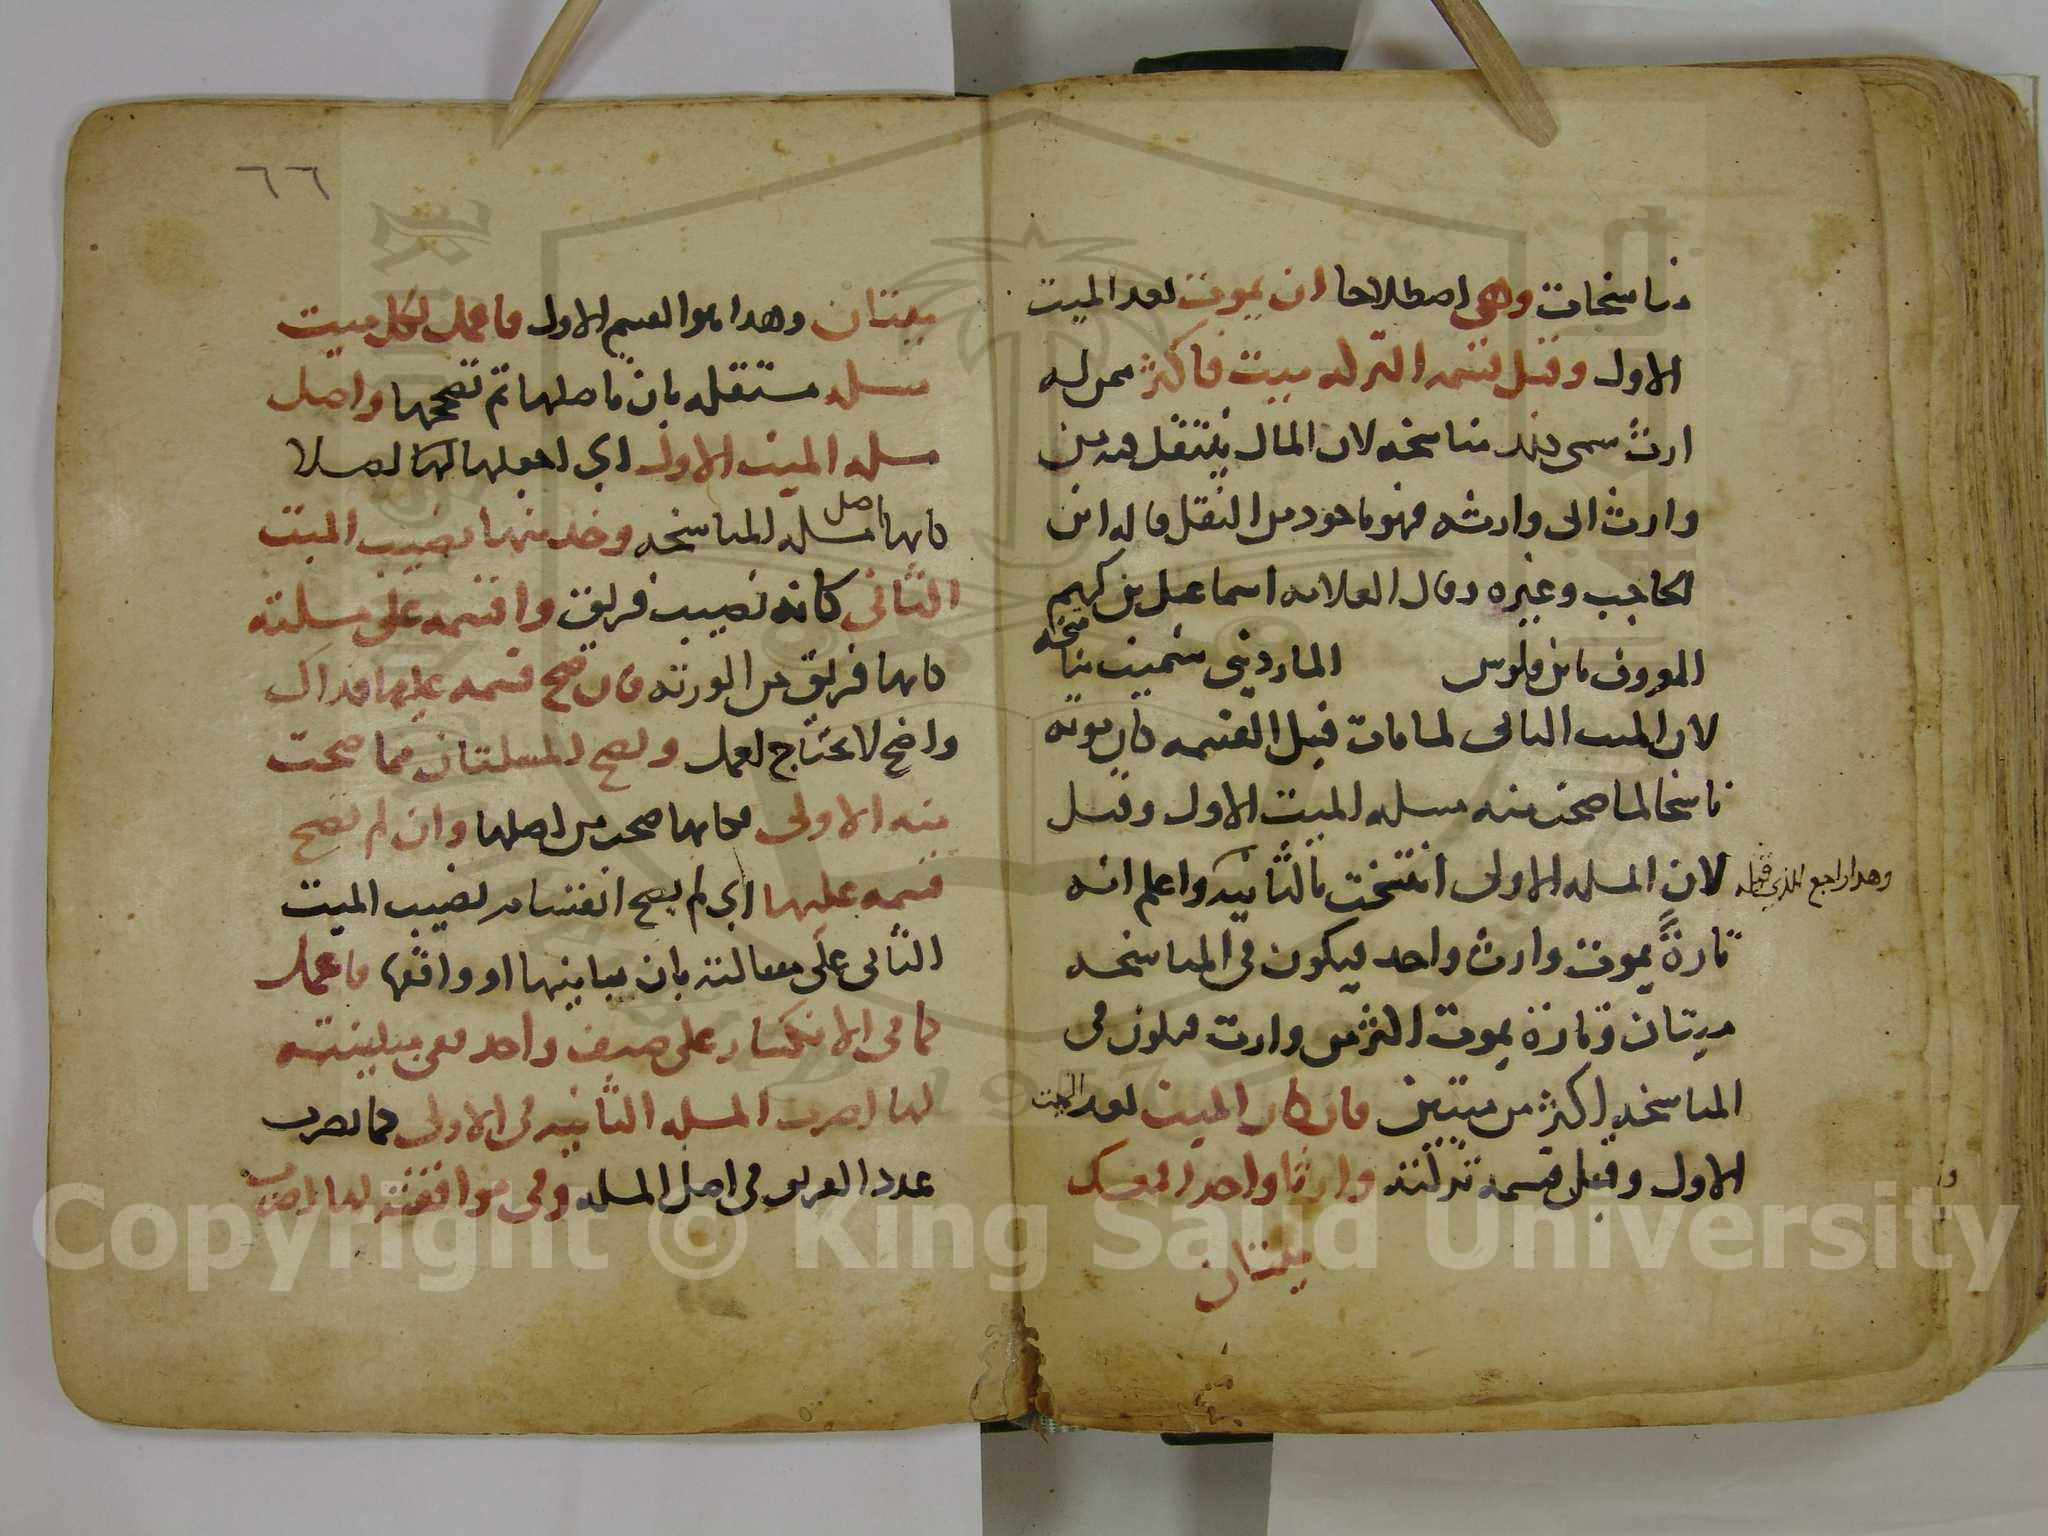 مناسخات وهي اصطلاحا ان يموت بعد الميت
الاول وقبل قسمة التركه ميت فاكثر ممن له
ارث سمى بهذا مناسخه لان المال ينتقل فيه من
وارث الى وارثه فهو ماخوذ من النقل قاله ابن
الحاجب وغيره وقال العلامه اسماعيل بن
المعروف بابن فلوس المارديني سميت مناسخه
لان الميت الثاني لما مات قبل القسمه كان موته
ناسخا لما صحت منه مسله الميت الاول وقيل
لان المسله الاولى انتسخت بالثانيه واعلم انه
وهدا راجع للذي قبله
تارةً يموت وارث واحد فيكون في المناسخه
ميتان وتارة يموت اكثر من وارث فيكون في
المناسخه اكثر من ميتين فان كان الميت بعد الميت
الاول وقبل قسمة تركته وارثا واحدا فمعك
ميتان
٦٦
ميتان وهدا هو القسم الاول فاعمل لكل ميت
مسله مستقله بان تاصلها ثم تصححها واصل
مسله الميت الاول اي اجعلها لها اصلا
كانها اصل مسله المناسخه وخذ منها نصيب الميت
الثاني كانه نصيب فريق واقسمه على مسلته
كانها فريق من الورثه فان صح قسمه عليها فداك
واضح لا يحتاج لعمل وتصح المسلتان مما صحت
منه الاولى فكانها صحت من اصلها وان لم تصح
قسمه عليها اي لم يصح انقسام نصيب الميت
الثاني على مسالته بان يباينها او وافقها فاعمل
كما في الانكسار على صنف واحد ففي مباينته
لها اضرب المسله الثانيه في الاولى كما تضرب
عدد الفريق في اصل المسله وفي موافقته لها اضرب
Copyright © King Saud University
1957